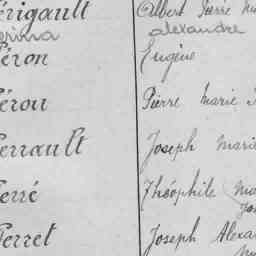 érigault Albert Pierre
alexandre
éron Eugène
érou Pierre Marie
errault Joseph Marie
erré Théophile Ma
erret Joseph Alexa